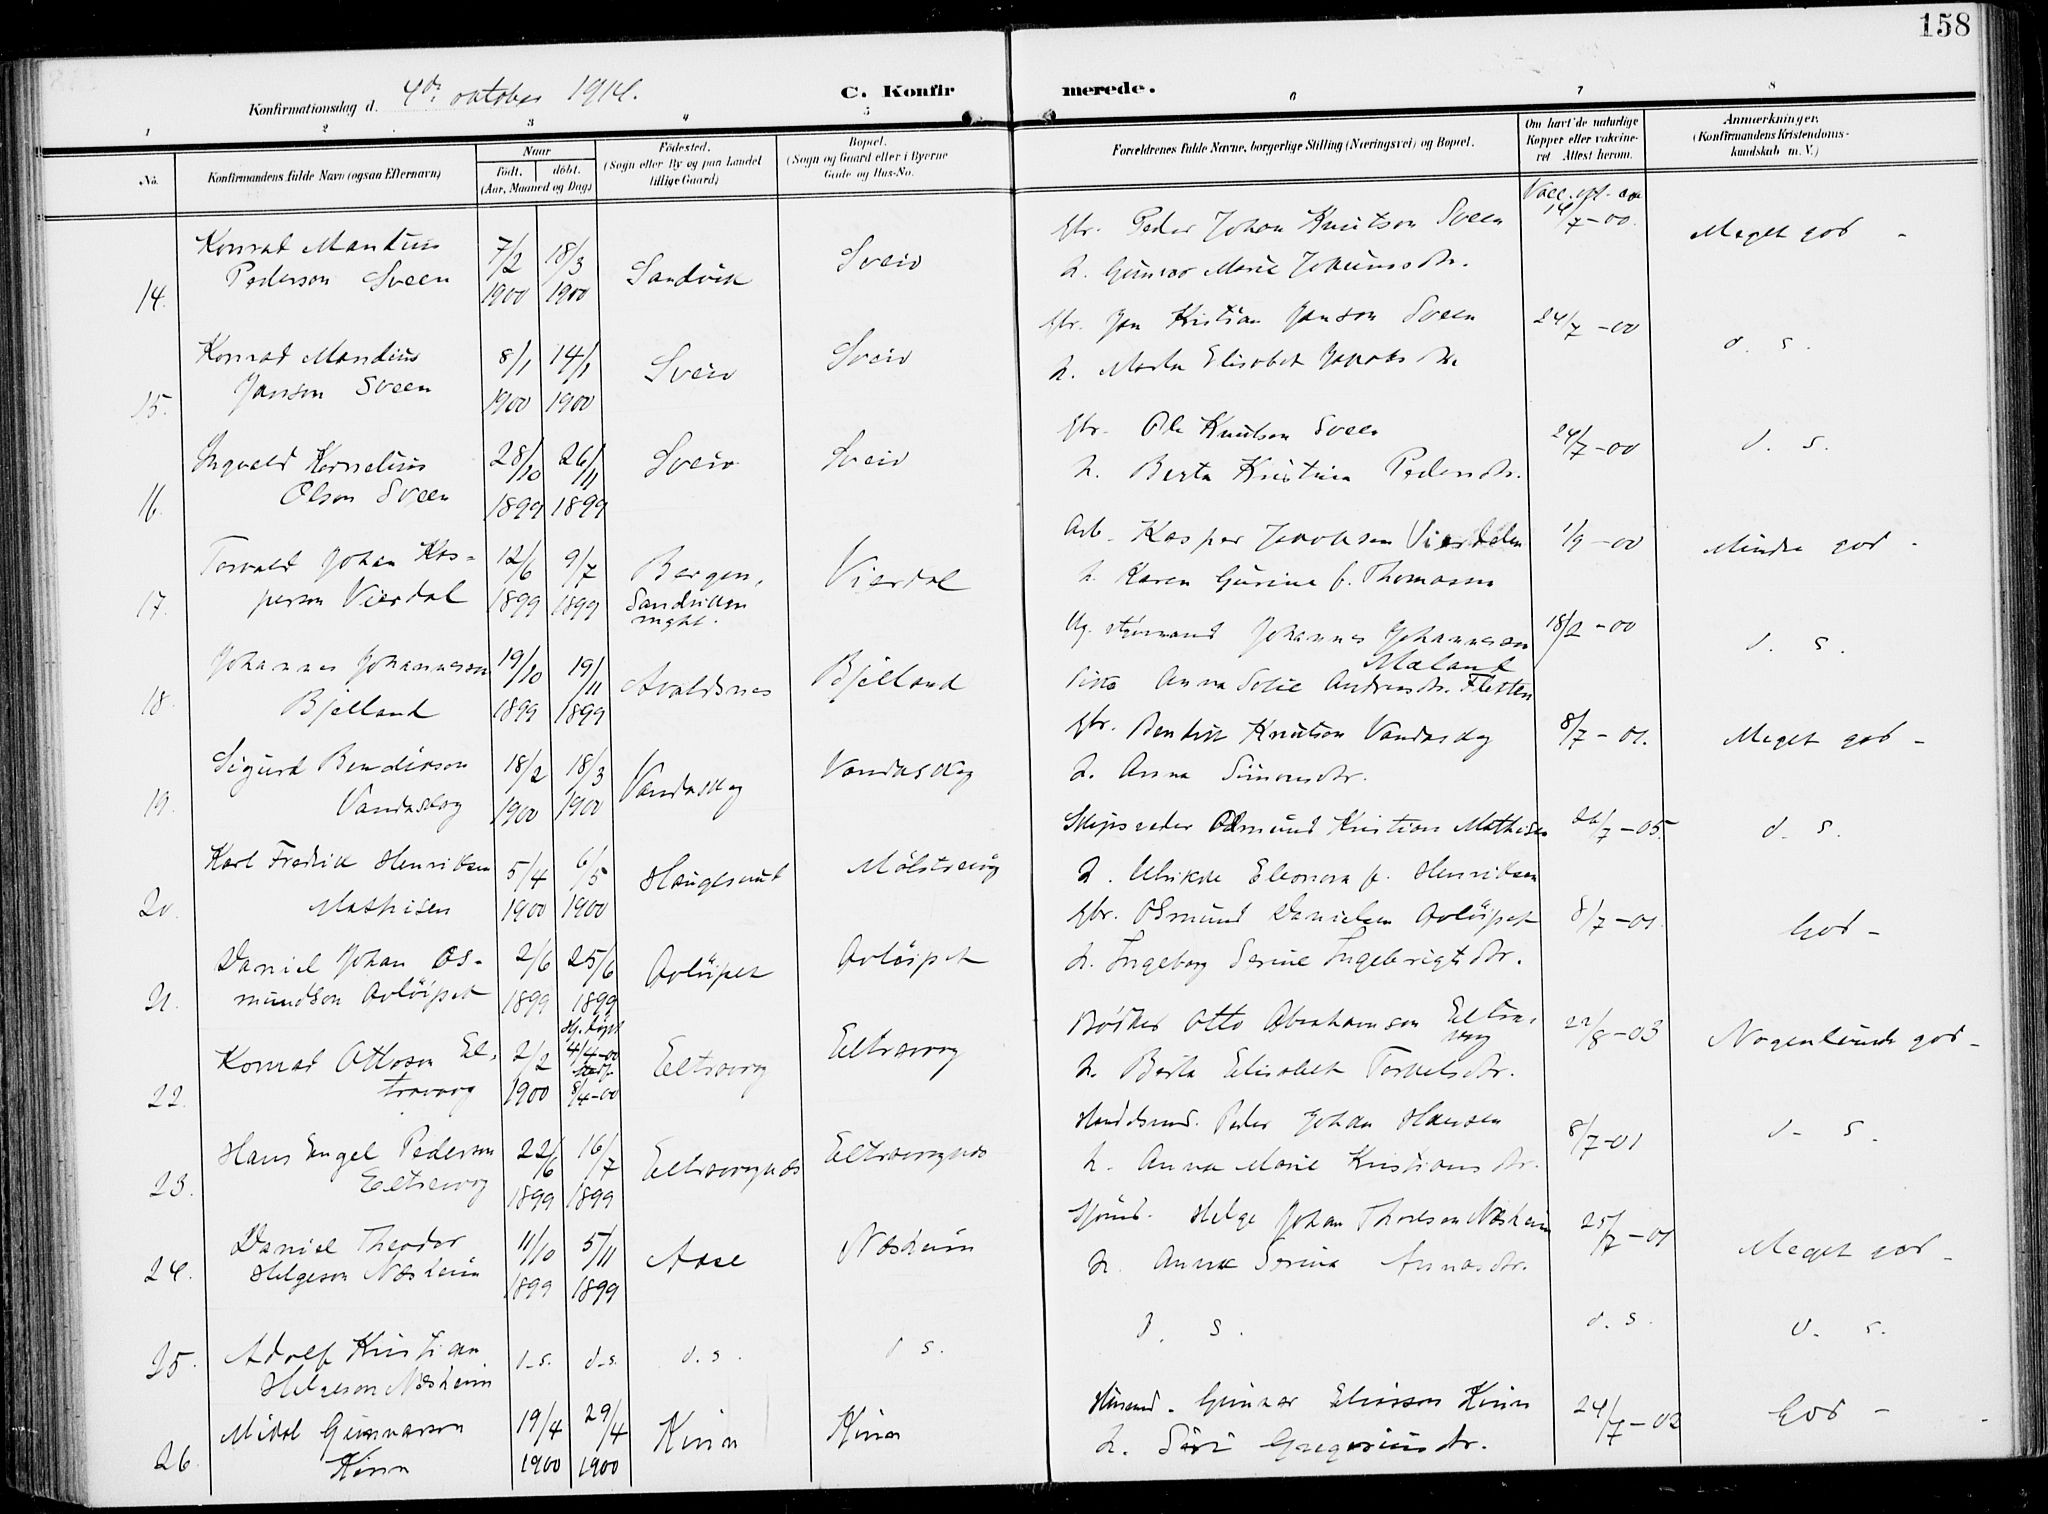 158
Konfirmationsdag d. 4de oktober 1914.
C. Konfirmerede.
1 2 3 4 5 6 7 8
No.
Konfirmandens fulde Navn (ogsaa Efternavn)
Naar
født. døbt.
(Aar, Maaned og Dag)
Fødested.
(Sogn eller By og paa Landet
tillige Gaard)
Bopæl.
(Sogn og Gaard eller i Byerne
Gade og Hus-No.
Forældrenes fulde Navne, borgerlige Stilling (Næringsvei) og Bopæl.
Om havt de naturlige
Kopper eller vakcine-
ret Attest herom.
Anmærkninger.
(Konfirmandens Kristendoms-
kundskab m. V.)
14. Konrad Mandius Pederson Sveen
7/2 1900
18/3 1900
Sandvik
Sveio
Gbr. Peder Johan Knutson Sveen
h. Gunvor Marie Johannsdtr.
14/7-00.
Meget god -
15. Konrad Mandius Janson Sveen
8/1 1900
14/1 1900
Sveio
Sveio
Gbr. Jan Kristian Janson Sveen
h. Marta Elisabet Jakobsdtr.
24/7-00
d. s.
16. Ingvald Kornelius Olson Sveen
28/10 1899
26/11 1899
Sveio
Sveio
Gbr. Ole Knutson Sveen
h. Berta Kristina Pedersdtr.
24/7-00
d. s.
17. Torvald Johan Kas-
person Vierdal
12/6 1899
9/7 1899
Bergen,
Sandviken
mght.
Vierdal
Arb. Kasper Jakobsen Vierdalen
h. Karen Gurine f. Thomassen
1/9-00
Mindre god -
18. Johannes Johanneson Bjelland
19/10 1899
19/11 1899
Avaldsnes
Bjelland
Ug. styrmand Johannes Johanneson
Mæland
Pike Anna Sofie Andreasdtr. Fletten
18/2-00
d. s.
19. Sigurd Bendikson Vandaskog
18/2 1900
18/3 1900
Vandaskog
Vandaskog
Gbr. Bendik Knutson Vandaskog
h. Anna Simonsdtr.
8/7-01.
Meget god -
20. Karl Fredrik Henriksen Mathisen
5/4 1900
6/5 1900
Haugesund
Mølstrevåg
Skipsreder Osmund Kristian Mathisen
h. Ulrikke Eleonora f. Henriksen
/7-05.
d. s.
21. Daniel Johan Os-
mundson Avløipet
2/6 1899
25/6 1899
Avløipet
Avløipet
Gbr. Osmund Danielsen Avløipet
h. Ingeborg Serine Ingebrigtsdtr.
8/7-01.
God -
22. Konrad Ottoson El-
travaag
2/2 1900
Hj.døpt
4/4-00
8/4-00
Eltravaag
Eltravaag
Bødker Otto Abrahamson Eltra-
vaag
h. Berta Elisabet Torkelsdtr.
22/8-03
Nogenlunde god -
23. Hans Engel Pederson Eltravaag
22/6 1899
16/7 1899
Eltravaagnes
Eltravaagnes
Peder Johan Hansen
h. Anna Marie Kristiansdtr.
8/7-01
d. s.
24. Daniel Theodor
Helgeson Næsheim
11/10 1899
5/11 1899
Aase
Næsheim
Sjømd. Helge Johan Thoreson Næsheim
h. Anna Serina Arnasdtr.
25/7-01
Meget god -
25. Adolf Kristian
Helgeson Næsheim
d. s.
d. s.
d. s.
d. s.
d. s.
d. s.
d. s.
26. Mikal Gunnarson Kinn
19/4 1900
29/4 1900
Kinn
Kinn
Husmd. Gunnar Eliasson Kinn
h. Siri Gregoriusdtr.
24/7-02
God -